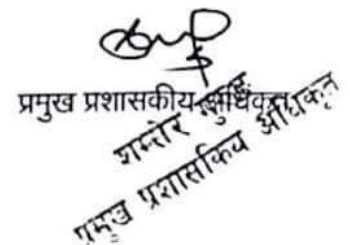 प्रमुख प्रशासकीय अधिकृत
शमशेर
प्रमुख प्रशासकिय अधिकृत